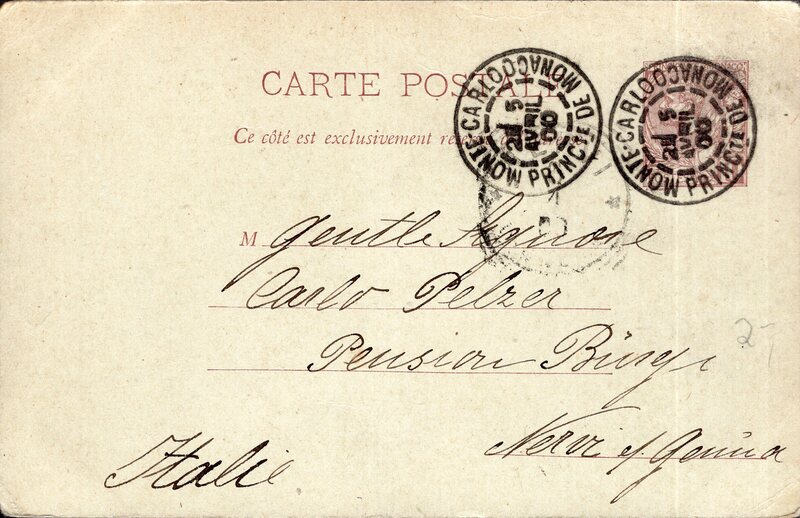 CARTE POSTALE
Ce côté est exclusivement
MONTE-CARLO PRINCTE DE MONACO
2E 5 AVRIL 00
MONTE-CARLO PRINCTE DE MONACO
2E 5 AVRIL 00
M Gentle Signore
Carlo Pelzer
Pension Bürgi
Nervi s/ Genua
Italie
2-